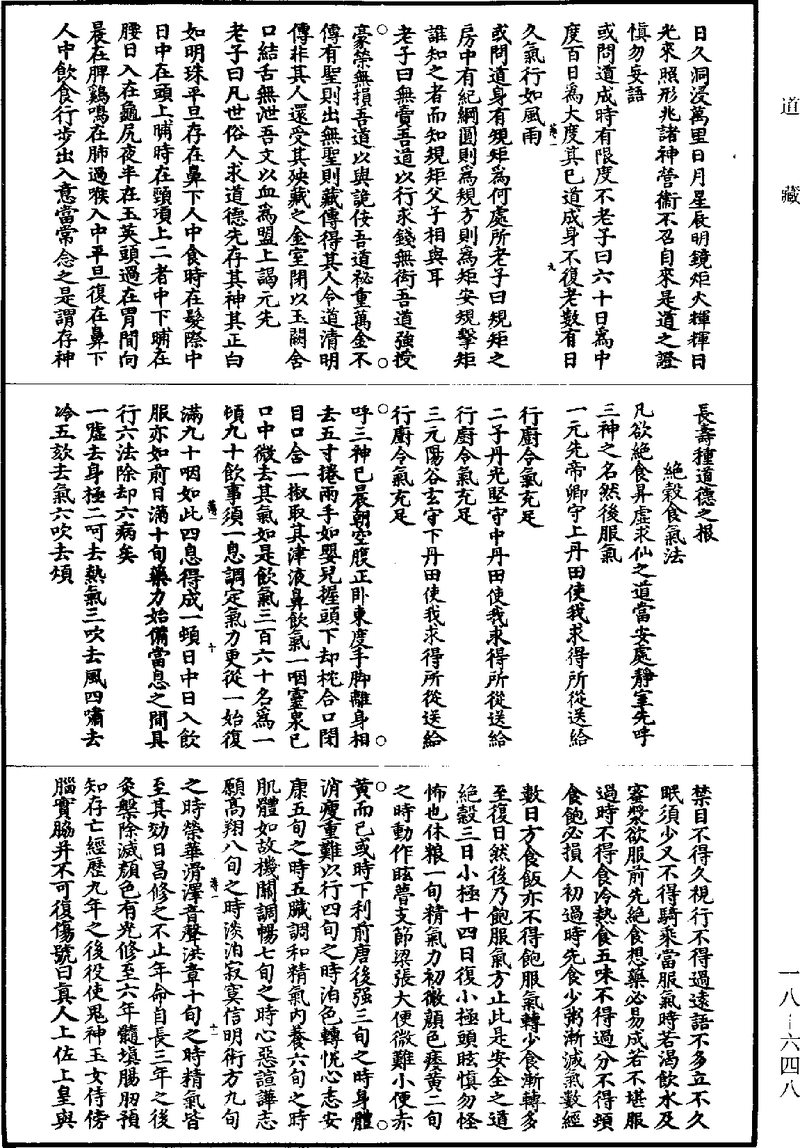 道藏
日久洞浸萬里日月星辰明鏡炬火輝輝日
光來照形兆諸神營衛不召自來是道之證
慎勿妄語
或問道成時有限度不老子曰六十日為中
度百日為大度其巳道成身不復老數有日
久氣行如風雨
或問道身有規矩為何處所老子曰規矩之
房中有紀綱圓則為規方則為矩安規擊矩
誰知之者而知規矩父子相與耳
老子曰無賣吾道以行求錢無衒吾道強授
豪榮無損吾道以與詭佞吾道祕重萬金不
傳有聖則出無聖則藏傳得其人令道清明
傳非其人還受其殃藏之金室閉以玉闕舍
口結舌無泄吾文以血為盟上謁元先
老子曰凡世俗人求道德先存其神其正白
如明珠平旦存在鼻下人中食時在髮際中
日中在頭上晡時在頸項上二者中下晡在
腰日入在龜尻夜半在玉英頭過在胃間向
晨在脾鷄鳴在肺過喉入中平旦復在鼻下
人中飲食行步出入意當常念之是謂存神
長壽種道德之根
絕穀食氣法
凡欲絕食昇虛求仙之道當安處靜室先呼
三神之名然後服氣
一元先帝卿守上丹田使我求得所從送給
行廚令氣充足
二子丹光堅守中丹田使我求得所從送給
行廚令氣充足
三元陽谷玄守下丹田使我求得所從送給
行廚令氣充足
呼三神巳晨朝空腹正卧東度手脚離身相
去五寸捲兩手如嬰兒握頭下却枕合口閉
目口含一椒取其津液鼻飲氣一咽靈泉巳
口中微去其氣如是飲氣三百六十名為一
頓九十飲事須一息調定氣力更從一始復
滿九十咽如此四息得成一頓日中日入飲
服亦如前日滿十旬藥力始備當息之間具
行六法除却六病矣
一噓去身極二呵去熱氣三吹去風四嘯去
冷五欬去氣六吹去煩
禁目不得久視行不得過遠語不多立不久
眠須少又不得騎乘當服氣時若渴飲水及
蜜漿欲服前先絕食想藥必易成若不堪服
過時不得食冷熱食五味不得過分不得頓
食飽必損人初過時先食少粥漸減氣數經
數日方食飯亦不得飽服氣轉少食漸轉多
至復日然後乃飽服氣方止此是安全之道
絕穀三日小極十四日復小極頭眩慎勿怪
怖也休粮一旬精氣力初微顏色痿黃二旬
之時動作眩瞢支節梁張大便微難小便赤
黃而巳或時下利前唐後强三旬之時身體
消瘦重難以行四旬之時泊色轉悅心志安
康五旬之時五臟調和精氣內養六旬之時
肌體如故機關調暢七旬之時心惡諠譁志
願高翔八旬之時淡泊寂寞信明術方九旬
之時榮華滑澤音聲洪章十旬之時精氣皆
至其効日昌修之不止年命自長三年之後
灸瘢除滅顏色有光修至六年髓填腸朋預
知存亡經歷九年之後役使鬼神玉女侍傍
腦實脇并不可復傷號曰真人上佐上皇與
一八—六四八